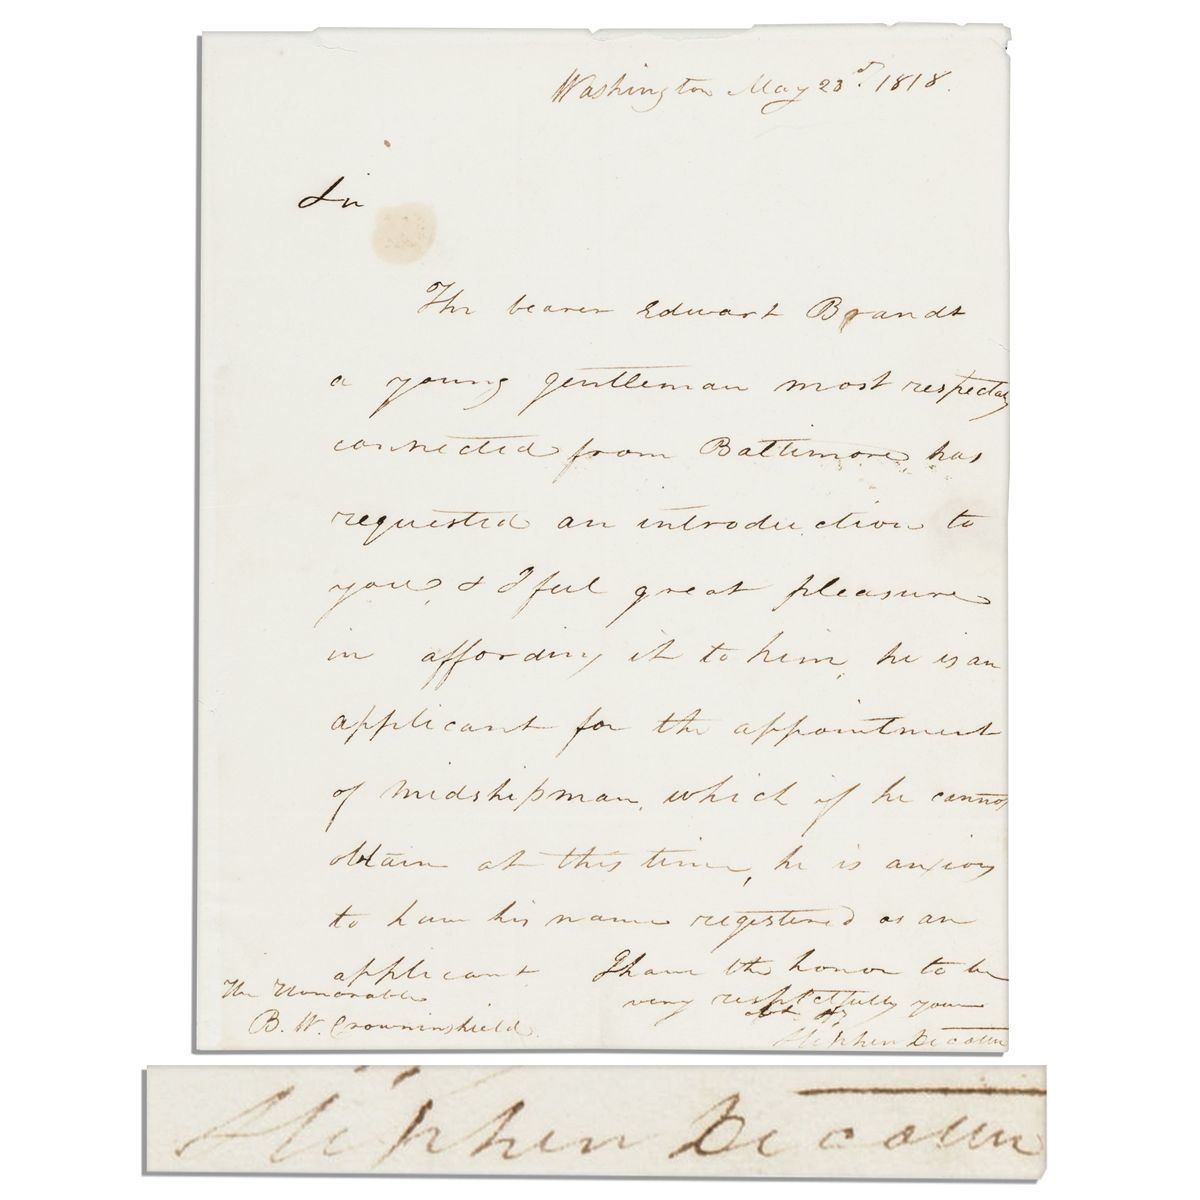 Washington May 23d. 1818.
Sir
The bearer Edwart Brandt
a young gentleman most respectably
connected from Baltimore, has
requested an introduction to
you, & I feel great pleasure
in affording it to him, he is an
applicant for the appointment
of midshipman, which if he cannot
obtain at this time, he is anxious
to have his name registered as an
applicant I have the honor to be
very respectfully your
obt. St.
Stephen Decatur
The Honorable
B. W. Crowninshield.
Stephen Decatur